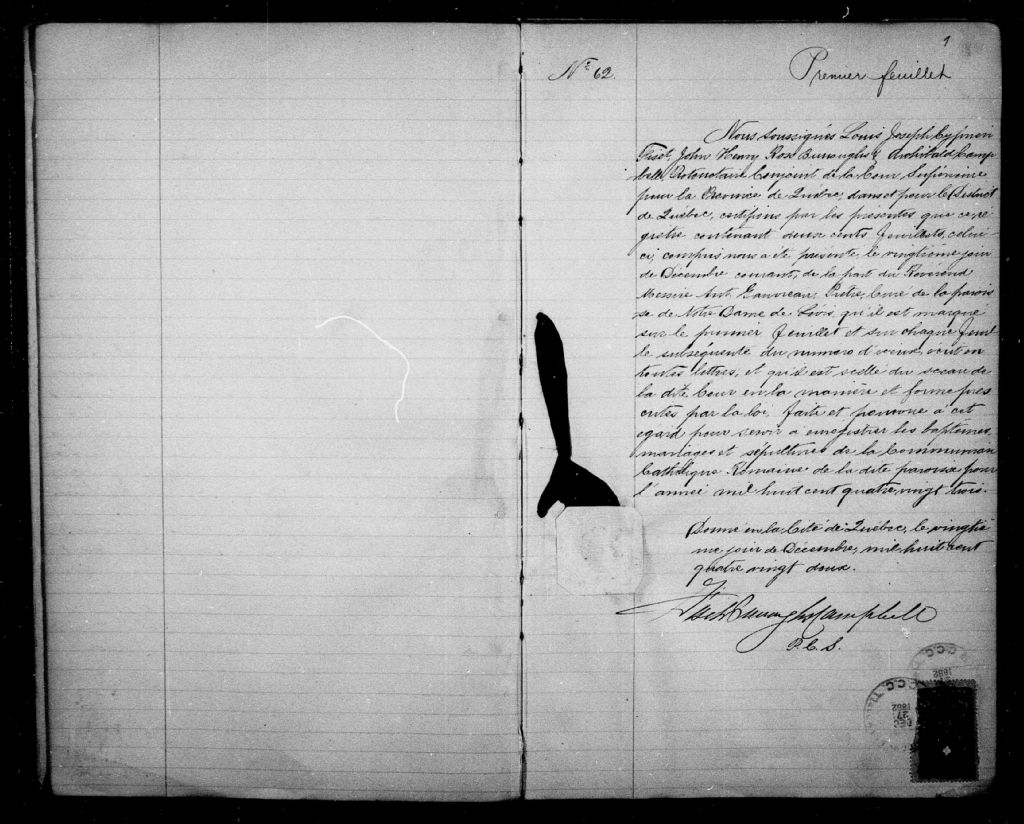 1
No 62.
Premier feuillet
Nous soussignés Louis Joseph Cyprien
Fiset, John Henry Ross Burroughs & Archibald Camp
bell, Protonotaire Conjoint de la Cour Supérieure
pour la Province de Québec, dans et pour le District
de Québec, certifions par les présentes que ce ré
gistre contenant deux cents feuillets, celui-
ci compris nous a été présenté le vingtième jour
de Décembre courant, de la part du Révérend
Messire Ant. Gauvreau, Prêtre, Curé de la parois
se de Notre Dame de Lévis, qu'il est marqué
sur le premier feuillet et sur chaque feuil
le subséquente du numéro d'iceux, écrit en
toutes lettres, et qu'il est scellé du sceau de
la dite Cour en la manière et forme pres
crites par la loi. faite et pourvue à cet
égard pour servir à enregistrer les baptêmes
mariages et sépultures de la Communion
Catholique Romaine de la dite paroisse pour
l'année mil huit cent quatre vingt trois.
Donné en la Cité de Québec, le vingtiè
me jour de Décembre, mil huit cent
quatre vingt deux.
Fiset Burroughs Campbell
P. C. S.
C.C.C.
1882
DEC
27
1882